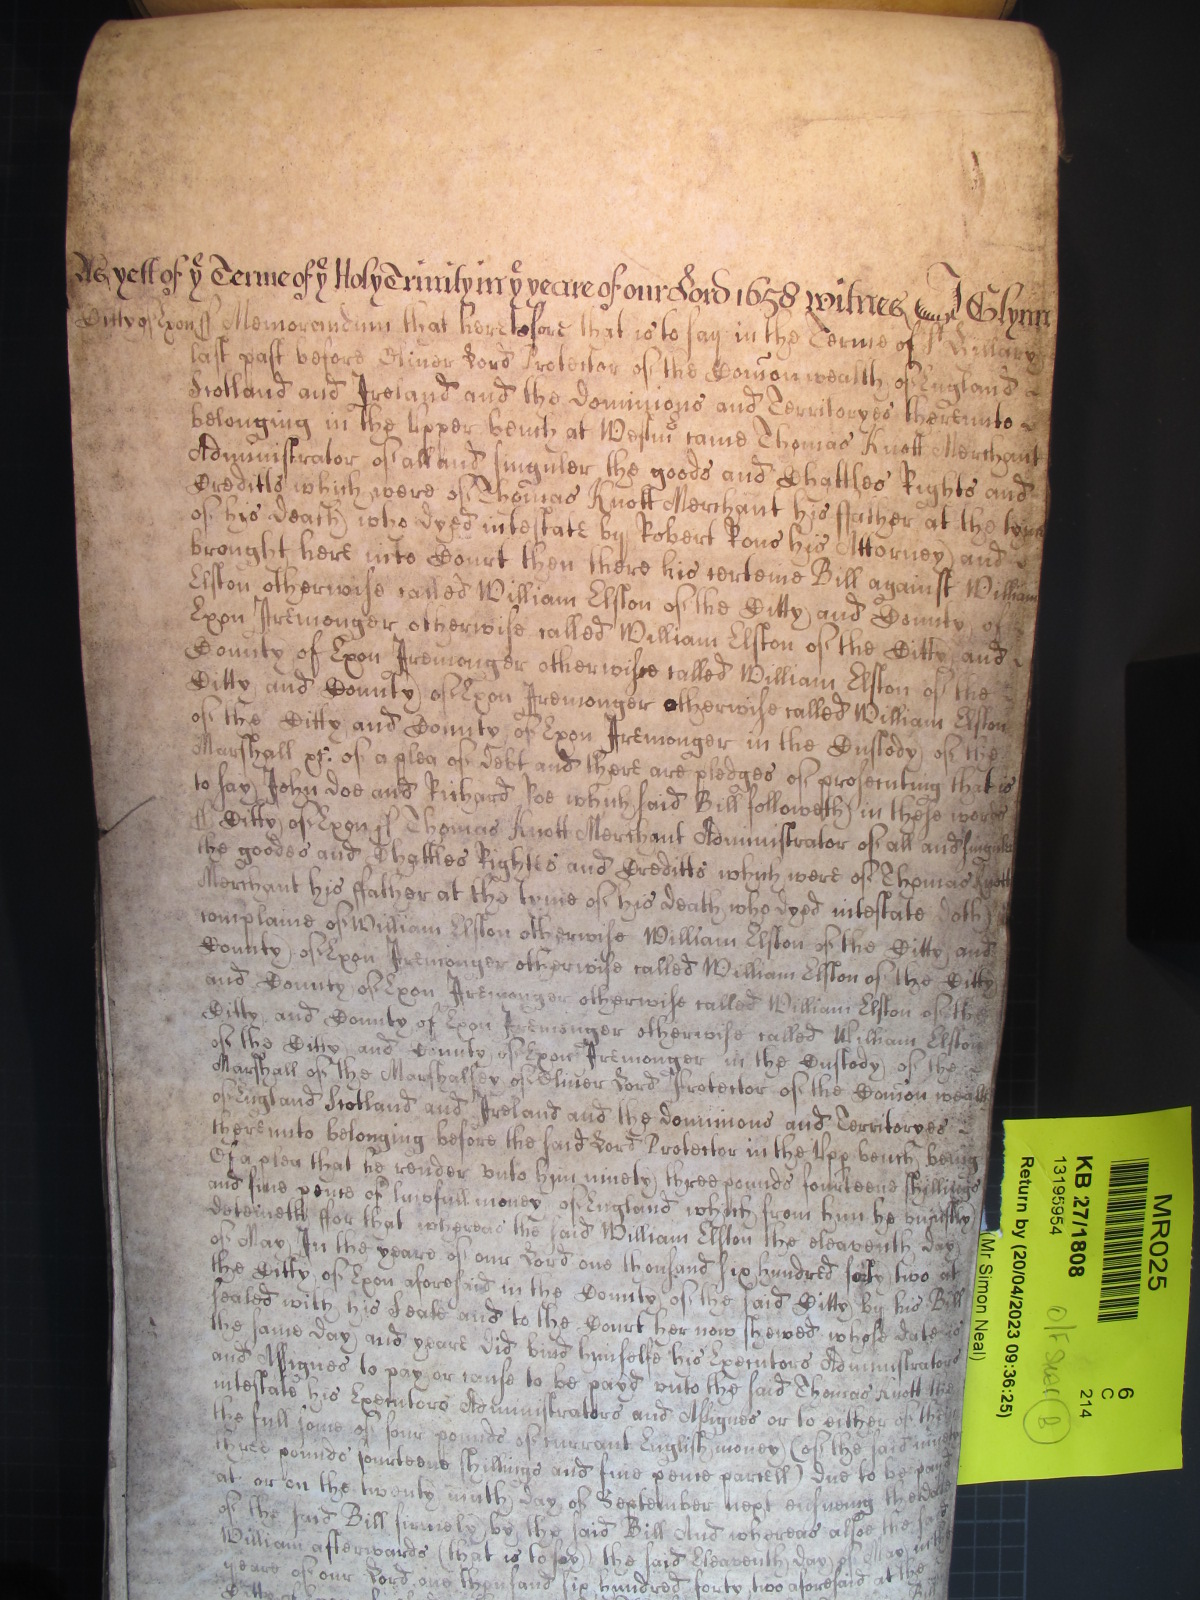 As yett of yͤ Terme of yͤ Holy Trinity in yͤ yeare of our Lord 1658 witnes J Glynne
Citty of Exon ss Memorandum that heretofore that is to say in the Terme of St Hillary
last past before Oliver Lord Protector of the Comon wealth of England
Scotland and Ireland and the dominions and Territoryes thereunto
belonging in the Upper bench at Westmr came Thomas Knott Merchant
Administrator of all and singuler the goods and Chattles Rights and
Creditts which were of Thomas Knott Merchant his ffather at the tyme
of his death who dyed intestate by Robert Rous his Attorney and
brought here into Court then there his certeine Bill against William
Elston otherwise called William Elston of the Citty and County of
Exon Iremonger otherwise called William Elston of the Citty and
County of Exon Iremonger otherwise called William Elston of the
Citty and County of Exon Iremonger otherwise called William Elston
of the Citty and County of Exon Iremonger in the Custody of the
Marshall &c. of a plea of debt and there are pledges of prosecuting that is
to say John Doe and Richard Roe which said Bill followeth in these words
ss Citty of Exon ss Thomas Knott Merchant Administrator of all and singuler
the goodes and Chattles Rightes and Creditts which were of Thomas Knott
Merchant his ffather at the tyme of his death who dyed intestate doth
complaine of William Elston otherwise William Elston of the Citty and
County of Exon Iremonger otherwise called William Elston of the Citty
and County of Exon Iremonger otherwise called William Elston of the
Citty and County of Exon Iremonger otherwise called William Elston
of the Citty and County of Exon Iremonger in the Custody of the
Marshall of the Marshallsey of Oliver Lord Protector of the Comon wealth
of England Scotland and Ireland and the dominions and Territoryes
thereunto belonging before the said Lord Protector in the Upp bench being
Of a plea that he render unto him ninety three pounds fourteene shillings
and five pence of lawfull money of England which from him he unjustly
deteineth ffor that whereas the said William Elston the eleaventh day
of May In the yeare of our Lord one thousand six hundred forty two at
the Citty of Exon aforesaid in the County of the said Citty by his Bill
sealed with his Seale and to the Court her now shewed whose date is
the same day and yeare did bind himselfe his Executors Administrators
and Assignes to pay or cause to be payd unto the said Thomas Knott the
intestate his Executors Administrators and Assignes or to either of them
the full some of four pounds of currant English money (of the said ninety
three pounds fourteene shillings and five pence parcell) due to be payd
at or on the twenty nínth day of September next ensueing the date
of the said Bill firmely by the said Bill And whereas alsoe the said
William afterwards (that is to say) the said Eleaventh day of May in the
yeare of our Lord one thousand six hundred forty two aforesaid at the
MR025
6
C
214
KB 27/1808
13195954
Return by (20/04/2023 09:36:25)
(Mr Simon Neal)
B